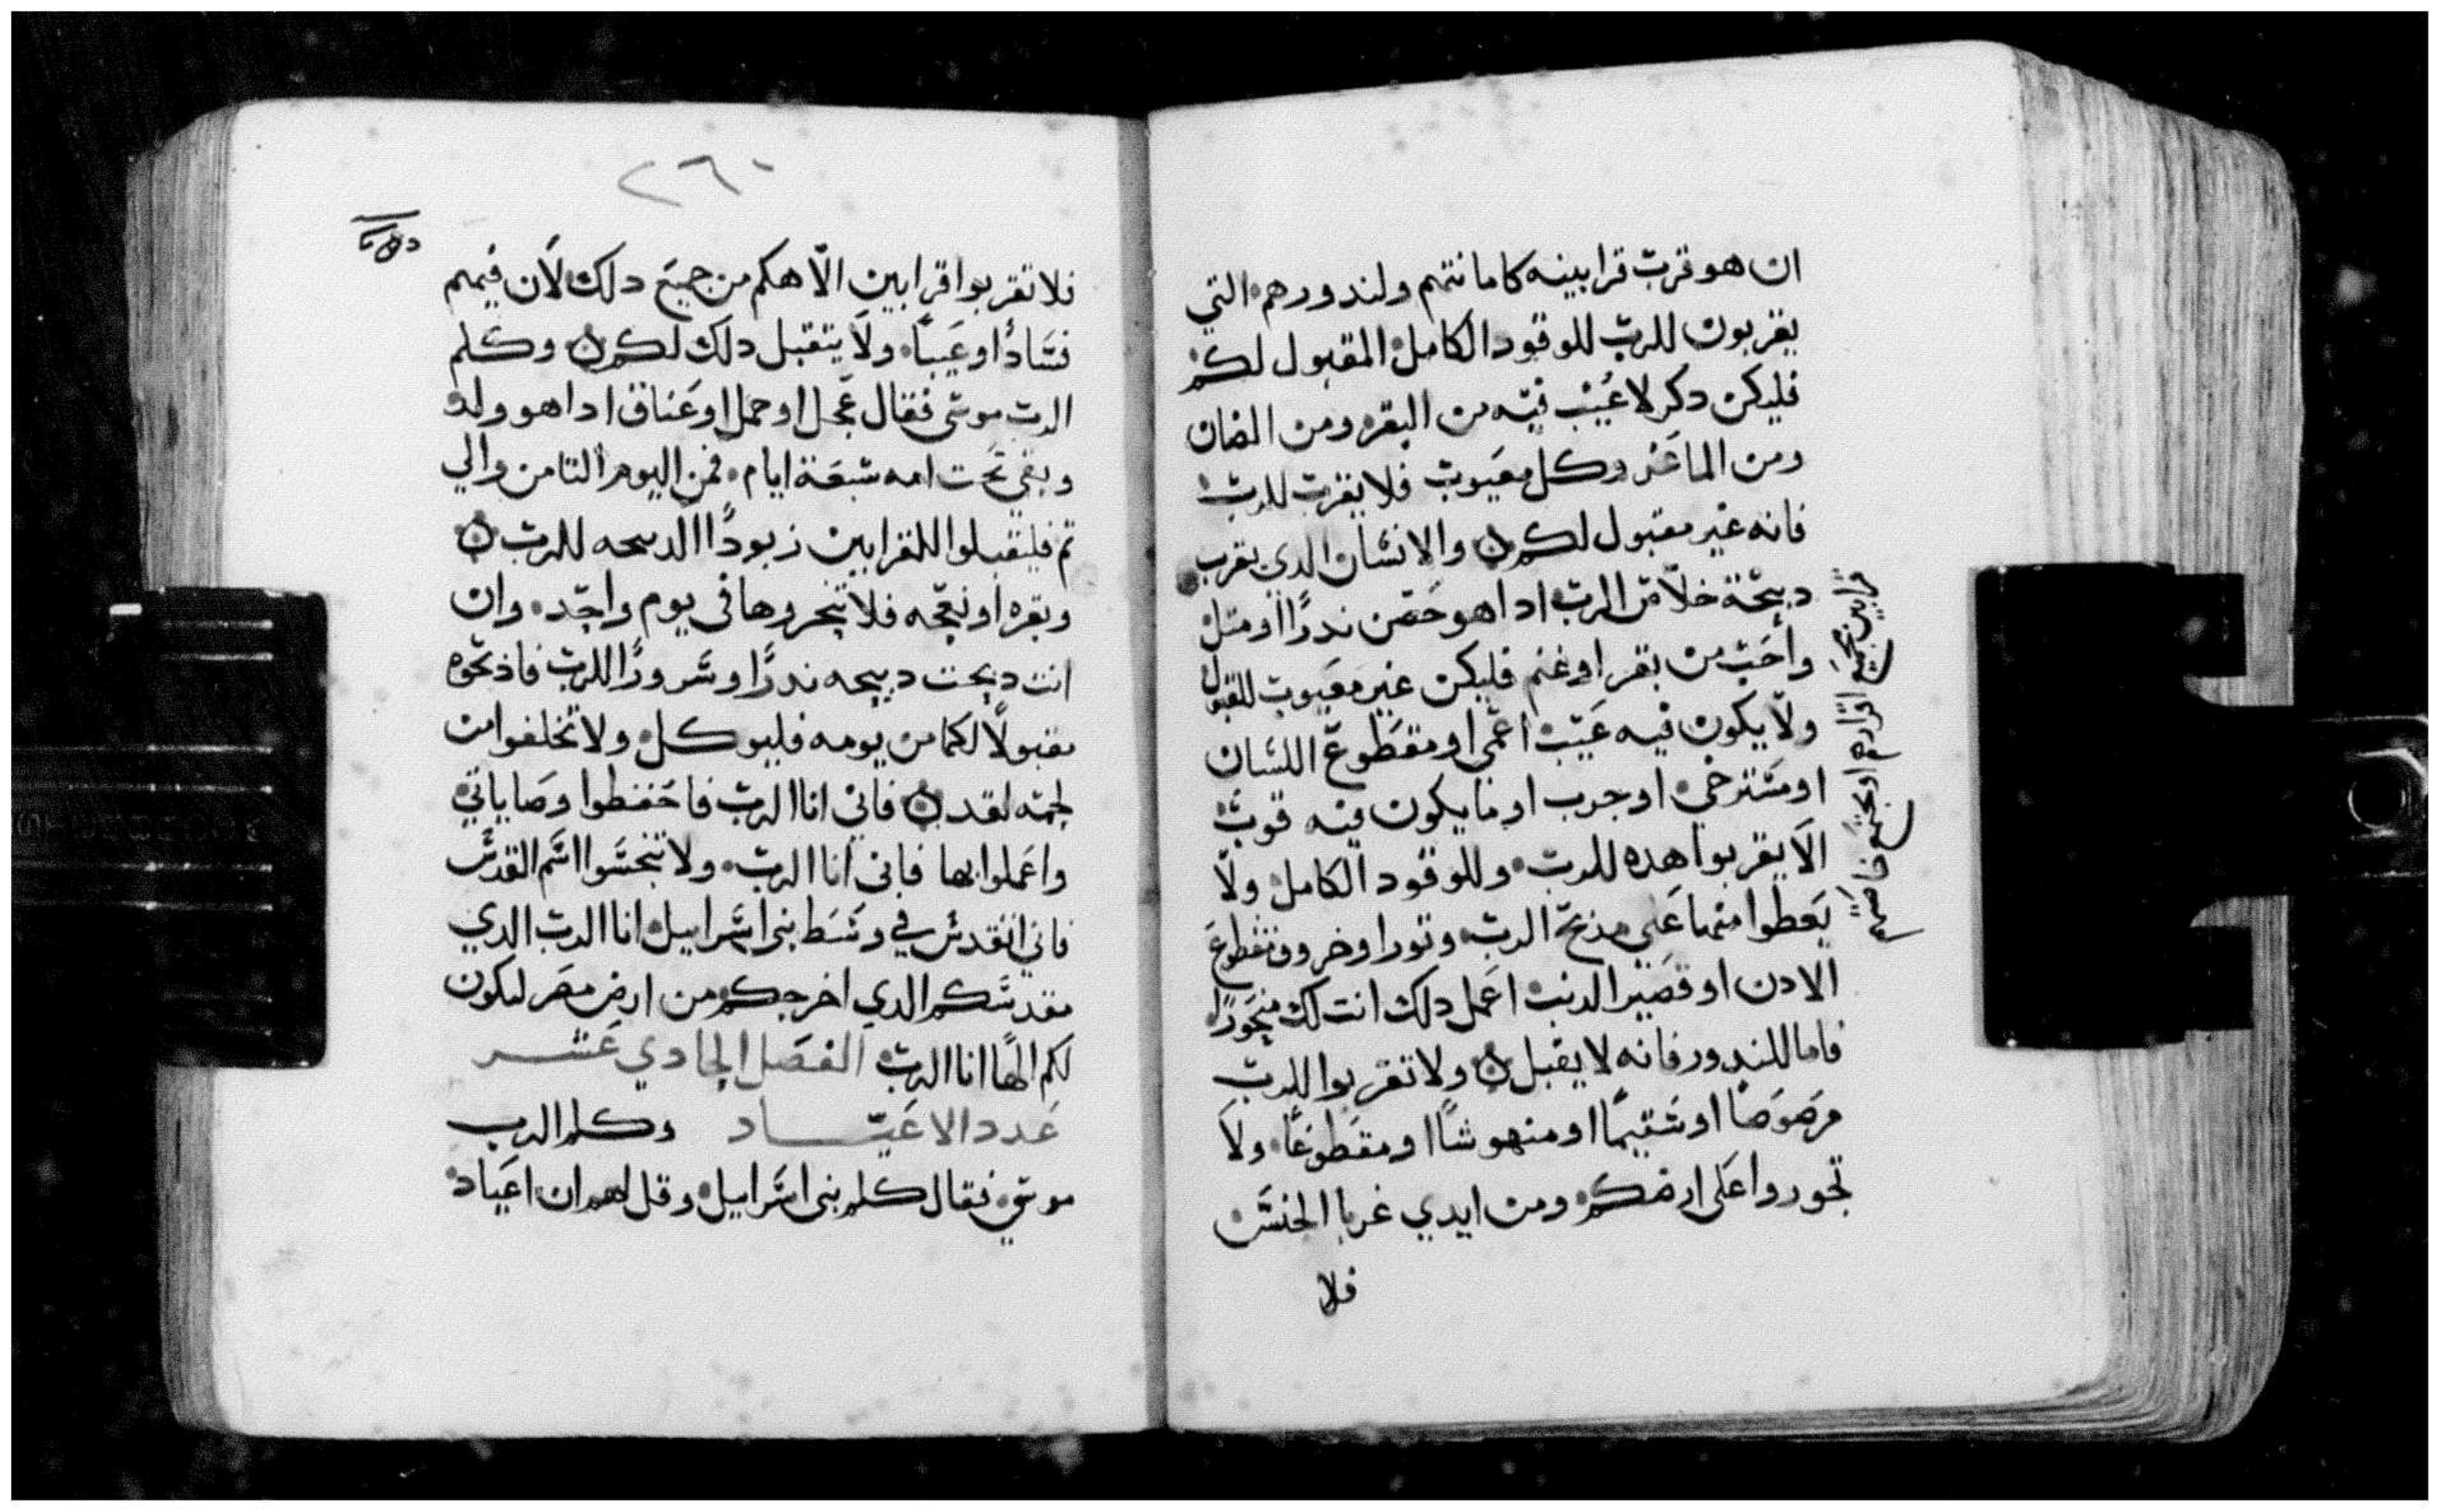 ان هو قرب قرابينه كامانتهم ولندورهم التي
يقربون للرب للوقود الكامل المقبول لكم
فليكن دكر لا عيب فيه من البقر ومن الضان
ومن الماعز وكل معيوب فلا يقرب للرب
فانه غير مقبول لكم والانسان الدي يقرب
دبيحة خلاص الرب ادا هو خص ندرًا او مثل
واحب من بقر او غنم فليكن غير معيوب للقبول
ولا يكون فيه عيب اعمى او مقطوع اللسان
او مسترخي او جرب او ما يكون فيه قوب
الا يقربوا هده للرب وللوقود الكامل ولا
يعطوا منها على مدبح الرب وتورا وخروف مقطوع
الادن او قصير الدنب اعمل دلك انت لك
فاما للندور فانه لا يقبل ولا تقربوا للرب
مرضوضا او شتيمًا او منهوشًا او مقطوعًا ولا
تجوروا على ارضكم ومن ايدي غربا الجنس
فلا
٢٦٠
فلا تقربوا قرابين الاهكم من جميع دلك لان فيهم
فسادًا وعيبًا ولا يتقبل دلك لكم وكلم
الرب موسى فقال عجل او حمل او عناق ادا هو ولد
وبقي تحت امه سبعة ايام فمن اليوم التامن والي
تم فليقبلوا للقرابين زبودًا الدبيحه للرب
وبقره او نعجه فلا تنحروها في يوم واحد وان
انت دبحت دبيحه ندرًا وسرورًا للرب فادبحوه
مقبولًا لكما من يومه فليوكل ولا تخلفوا من
لحمه لغد فاني انا الرب فاحفظوا وصاياتي
واعملوا بها فاني انا الرب ولا تنجسوا اسم القدس
فاني اتقدس في وسط بني اسراييل انا الرب الدي
مقدسكم الدي اخرجكم من ارض مصر ليكون
لكم الهًا انا الرب الفصل الحادي عشر
عدد الاعياد وكلم الرب
موسى فقال كلم بني اسراييل وقل لهم ان اعياد